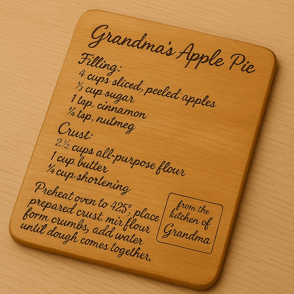 Grandma's Apple Pie
Filling:
4 cups sliced, peeled apples
⅓ cup sugar
1 tsp. cinnamon
¼ tsp. nutmeg
Crust:
2½ cups all-purpose flour
1 cup butter
¼ cup shortening
Preheat oven to 425°, place
prepared crust. mix flour
form crumbs, add water
until dough comes together.
from the
kitchen of
Grandma